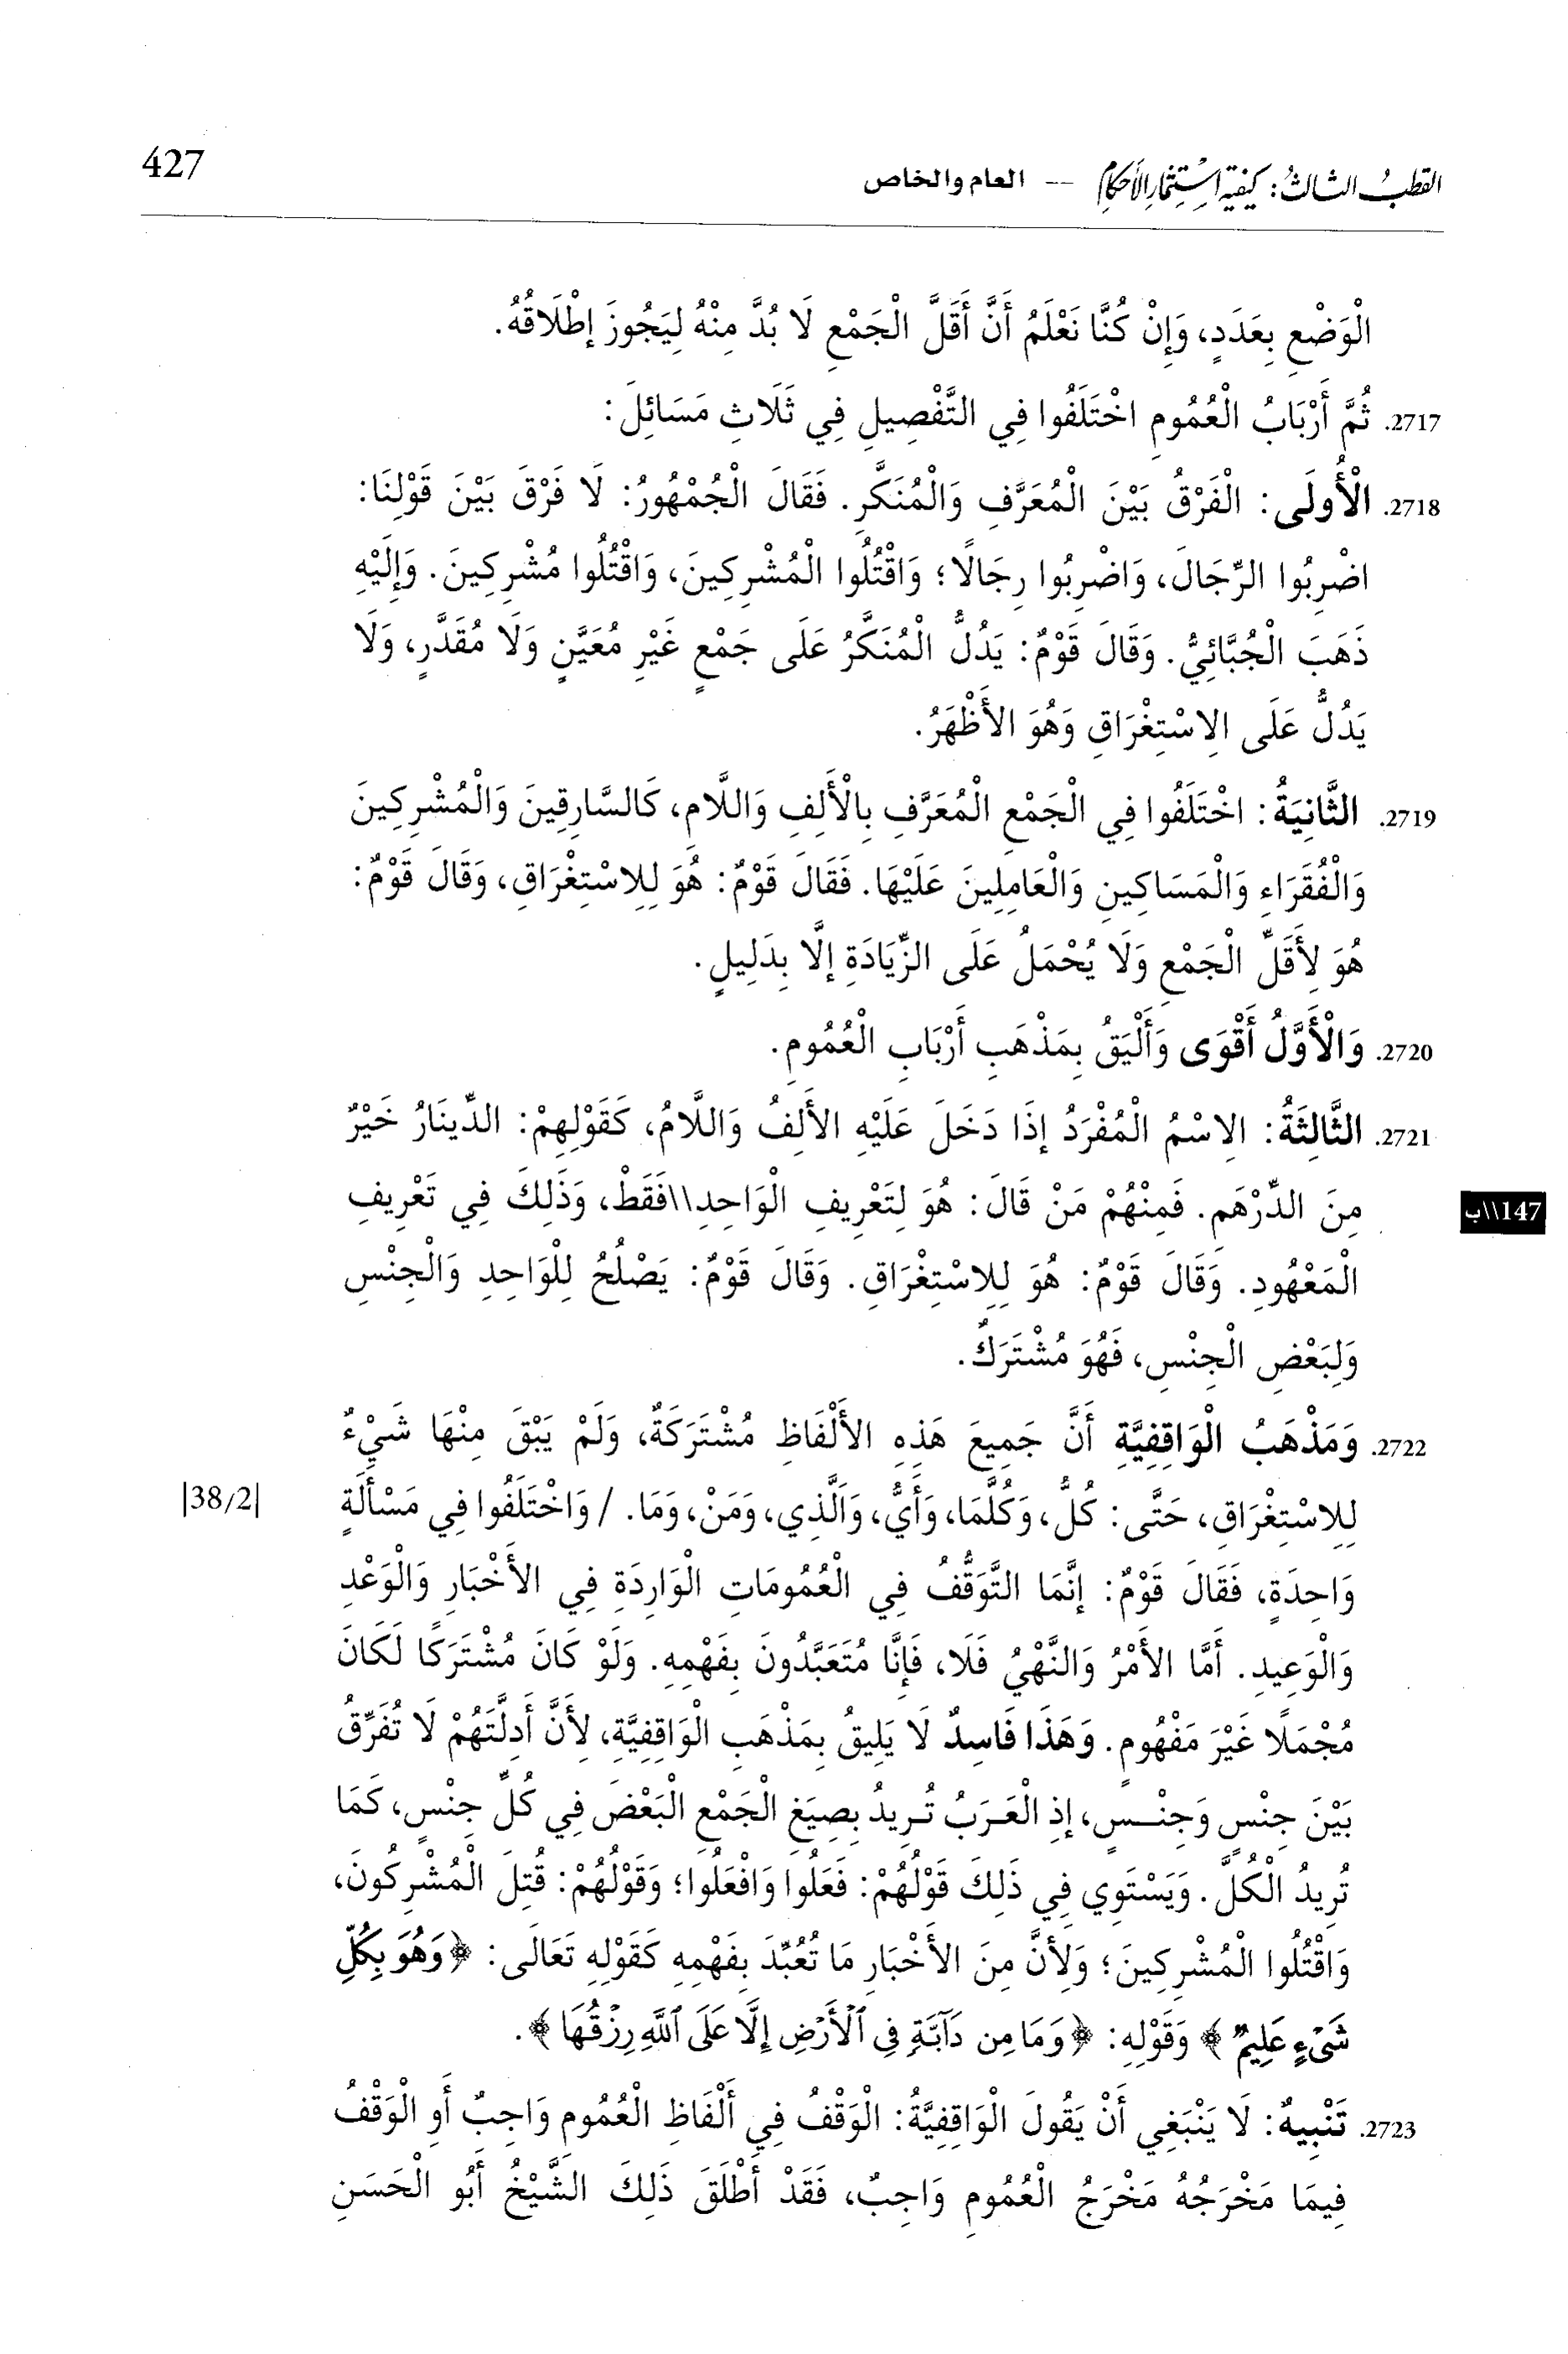 القطب الثالث: كيفية استثمار الأحكام — العام والخاص
427
الْوَضْعِ بِعَدَدٍ، وَإِنْ كُنَّا نَعْلَمُ أَنَّ أَقَلَّ الْجَمْعِ لَا بُدَّ مِنْهُ لِيَجُوزَ إِطْلَاقُهُ.
2717. ثُمَّ أَرْبَابُ الْعُمُومِ اخْتَلَفُوا فِي التَّفْصِيلِ فِي ثَلَاثِ مَسَائِلَ:
2718. الْأُولَى: الْفَرْقُ بَيْنَ الْمُعَرَّفِ وَالْمُنَكَّرِ. فَقَالَ الْجُمْهُورُ: لَا فَرْقَ بَيْنَ قَوْلِنَا:
اضْرِبُوا الرِّجَالَ، وَاضْرِبُوا رِجَالًا؛ وَاقْتُلُوا الْمُشْرِكِينَ، وَاقْتُلُوا مُشْرِكِينَ. وَإِلَيْهِ
ذَهَبَ الْجُبَّائِيُّ. وَقَالَ قَوْمٌ: يَدُلُّ الْمُنَكَّرُ عَلَى جَمْعٍ غَيْرِ مُعَيَّنٍ وَلَا مُقَدَّرٍ، وَلَا
يَدُلُّ عَلَى الِاسْتِغْرَاقِ وَهُوَ الأَظْهَرُ.
2719. الثَّانِيَةُ: اخْتَلَفُوا فِي الْجَمْعِ الْمُعَرَّفِ بِالْأَلِفِ وَاللَّامِ، كَالسَّارِقِينَ وَالْمُشْرِكِينَ
وَالْفُقَرَاءِ وَالْمَسَاكِينِ وَالْعَامِلِينَ عَلَيْهَا. فَقَالَ قَوْمٌ: هُوَ لِلِاسْتِغْرَاقِ، وَقَالَ قَوْمٌ:
هُوَ لِأَقَلِّ الْجَمْعِ وَلَا يُحْمَلُ عَلَى الزِّيَادَةِ إِلَّا بِدَلِيلٍ.
2720. وَالْأَوَّلُ أَقْوَى وَأَلْيَقُ بِمَذْهَبِ أَرْبَابِ الْعُمُومِ.
2721. الثَّالِثَةُ: الِاسْمُ الْمُفْرَدُ إِذَا دَخَلَ عَلَيْهِ الأَلِفُ وَاللَّامُ، كَقَوْلِهِمْ: الدِّينَارُ خَيْرٌ
مِنَ الدِّرْهَمِ. فَمِنْهُمْ مَنْ قَالَ: هُوَ لِتَعْرِيفِ الْوَاحِدِ\\فَقَطْ، وَذَلِكَ فِي تَعْرِيفِ
147\\ب
الْمَعْهُودِ. وَقَالَ قَوْمٌ: هُوَ لِلِاسْتِغْرَاقِ. وَقَالَ قَوْمٌ: يَصْلُحُ لِلْوَاحِدِ وَالْجِنْسِ
وَلِبَعْضِ الْجِنْسِ، فَهُوَ مُشْتَرَكٌ.
2722. وَمَذْهَبُ الْوَاقِفِيَّةِ أَنَّ جَمِيعَ هَذِهِ الأَلْفَاظِ مُشْتَرَكَةٌ، وَلَمْ يَبْقَ مِنْهَا شَيْءٌ
لِلِاسْتِغْرَاقِ، حَتَّى: كُلُّ، وَكُلَّمَا، وَأَيُّ، وَالَّذِي، وَمَنْ، وَمَا. / وَاخْتَلَفُوا فِي مَسْأَلَةٍ
|38/2|
وَاحِدَةٍ، فَقَالَ قَوْمٌ: إِنَّمَا التَّوَقُّفُ فِي الْعُمُومَاتِ الْوَارِدَةِ فِي الأَخْبَارِ وَالْوَعْدِ
وَالْوَعِيدِ. أَمَّا الأَمْرُ وَالنَّهْيُ فَلَا، فَإِنَّا مُتَعَبَّدُونَ بِفَهْمِهِ. وَلَوْ كَانَ مُشْتَرَكًا لَكَانَ
مُجْمَلًا غَيْرَ مَفْهُومٍ. وَهَذَا فَاسِدٌ لَا يَلِيقُ بِمَذْهَبِ الْوَاقِفِيَّةِ، لِأَنَّ أَدِلَّتَهُمْ لَا تُفَرِّقُ
بَيْنَ جِنْسٍ وَجِنْسٍ، إِذِ الْعَرَبُ تُرِيدُ بِصِيَغِ الْجَمْعِ الْبَعْضَ فِي كُلِّ جِنْسٍ، كَمَا
تُرِيدُ الْكُلَّ. وَيَسْتَوِي فِي ذَلِكَ قَوْلُهُمْ: فَعَلُوا وَافْعَلُوا؛ وَقَوْلُهُمْ: قُتِلَ الْمُشْرِكُونَ،
وَاقْتُلُوا الْمُشْرِكِينَ؛ وَلِأَنَّ مِنَ الأَخْبَارِ مَا تُعُبِّدَ بِفَهْمِهِ كَقَوْلِهِ تَعَالَى: ﴿وَهُوَ بِكُلِّ
شَيْءٍ عَلِيمٌ﴾ وَقَوْلِهِ: ﴿وَمَا مِن دَآبَّةٍ فِى ٱلْأَرْضِ إِلَّا عَلَى ٱللَّهِ رِزْقُهَا﴾.
2723. تَنْبِيهٌ: لَا يَنْبَغِي أَنْ يَقُولَ الْوَاقِفِيَّةُ: الْوَقْفُ فِي أَلْفَاظِ الْعُمُومِ وَاجِبٌ أَوِ الْوَقْفُ
فِيمَا مَخْرَجُهُ مَخْرَجُ الْعُمُومِ وَاجِبٌ، فَقَدْ أَطْلَقَ ذَلِكَ الشَّيْخُ أَبُو الْحَسَنِ